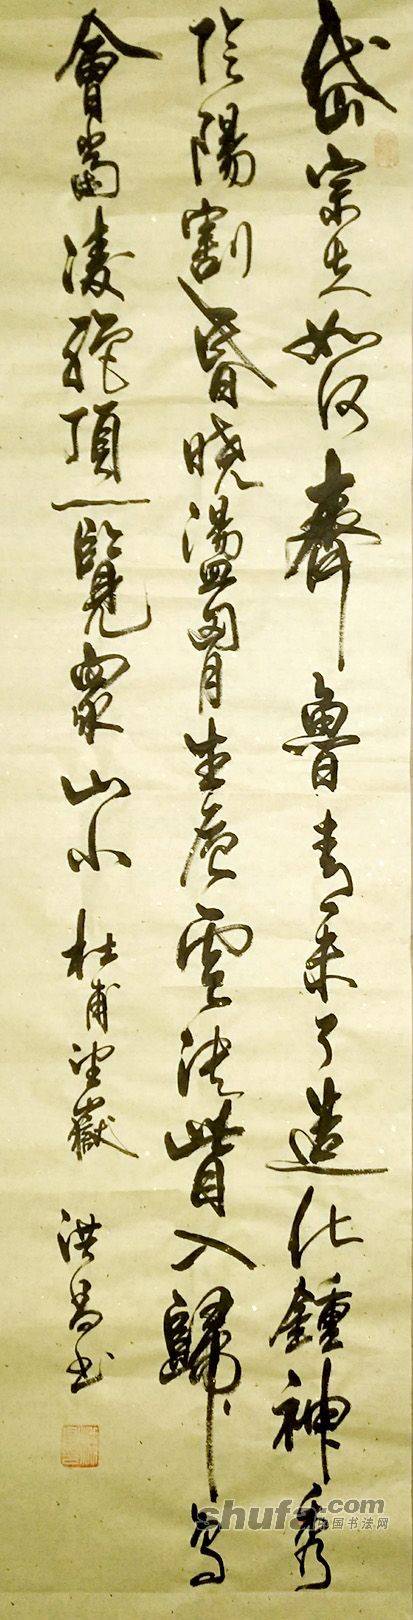 岱宗夫如何齊魯青未了造化鍾神秀
陰陽割昏曉盪胸生層雲決眥入歸鳥
會當凌絕頂一覽衆山小 杜甫望嶽 洪昌書
shufa.com
中国书法网